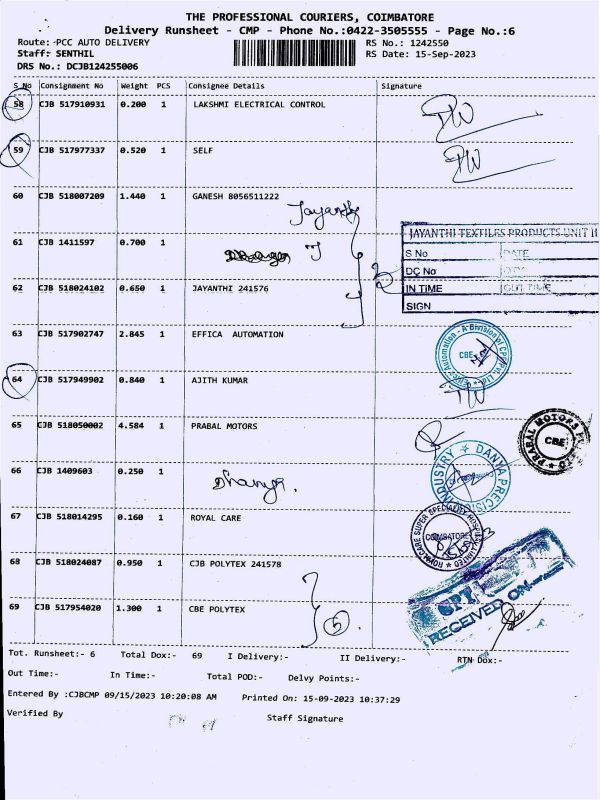 THE PROFESSIONAL COURIERS, COIMBATORE
Delivery Runsheet - CMP - Phone No.:0422-3505555 - Page No.:6
Route: PCC AUTO DELIVERY
RS No.: 1242550
Staff: SENTHIL
RS Date: 15-Sep-2023
DRS No.: DCJB124255006
S No Consignment No Weight PCS Consignee Details Signature
58 CJB 517910931 0.200 1 LAKSHMI ELECTRICAL CONTROL
59 CJB 517977337 0.520 1 SELF
60 CJB 518007209 1.440 1 GANESH 8056511222
Jayanthi
JAYANTHI TEXTILES PRODUCTS UNIT II
61 CJB 1411597 0.700 1
S No DATE
DC No
62 CJB 518024102 0.650 1 JAYANTHI 241576
IN TIME OUT TIME
SIGN
63 CJB 517902747 2.845 1 EFFICA AUTOMATION
CBE
64 CJB 517949902 0.840 1 AJITH KUMAR
65 CJB 518050002 4.584 1 PRABAL MOTORS
PRABAL MOTORS
CBE
66 CJB 1409603 0.250 1
Dhanya.
DANYA PRECISI
INDUSTRY
67 CJB 518014295 0.160 1 ROYAL CARE
ROYAL CARE SUPER SPECIALITY HOSPITAL LIMITED
COIMBATORE
68 CJB 518024087 0.950 1 CJB POLYTEX 241578
69 CJB 517954020 1.300 1 CBE POLYTEX
CPT
RECEIVED ON
Tot. Runsheet:- 6 Total Dox:- 69 I Delivery:- II Delivery:- RTN Dox:-
Out Time:- In Time:- Total POD:- Delvy Points:-
Entered By :CJBCMP 09/15/2023 10:20:08 AM Printed On: 15-09-2023 10:37:29
Verified By Staff Signature